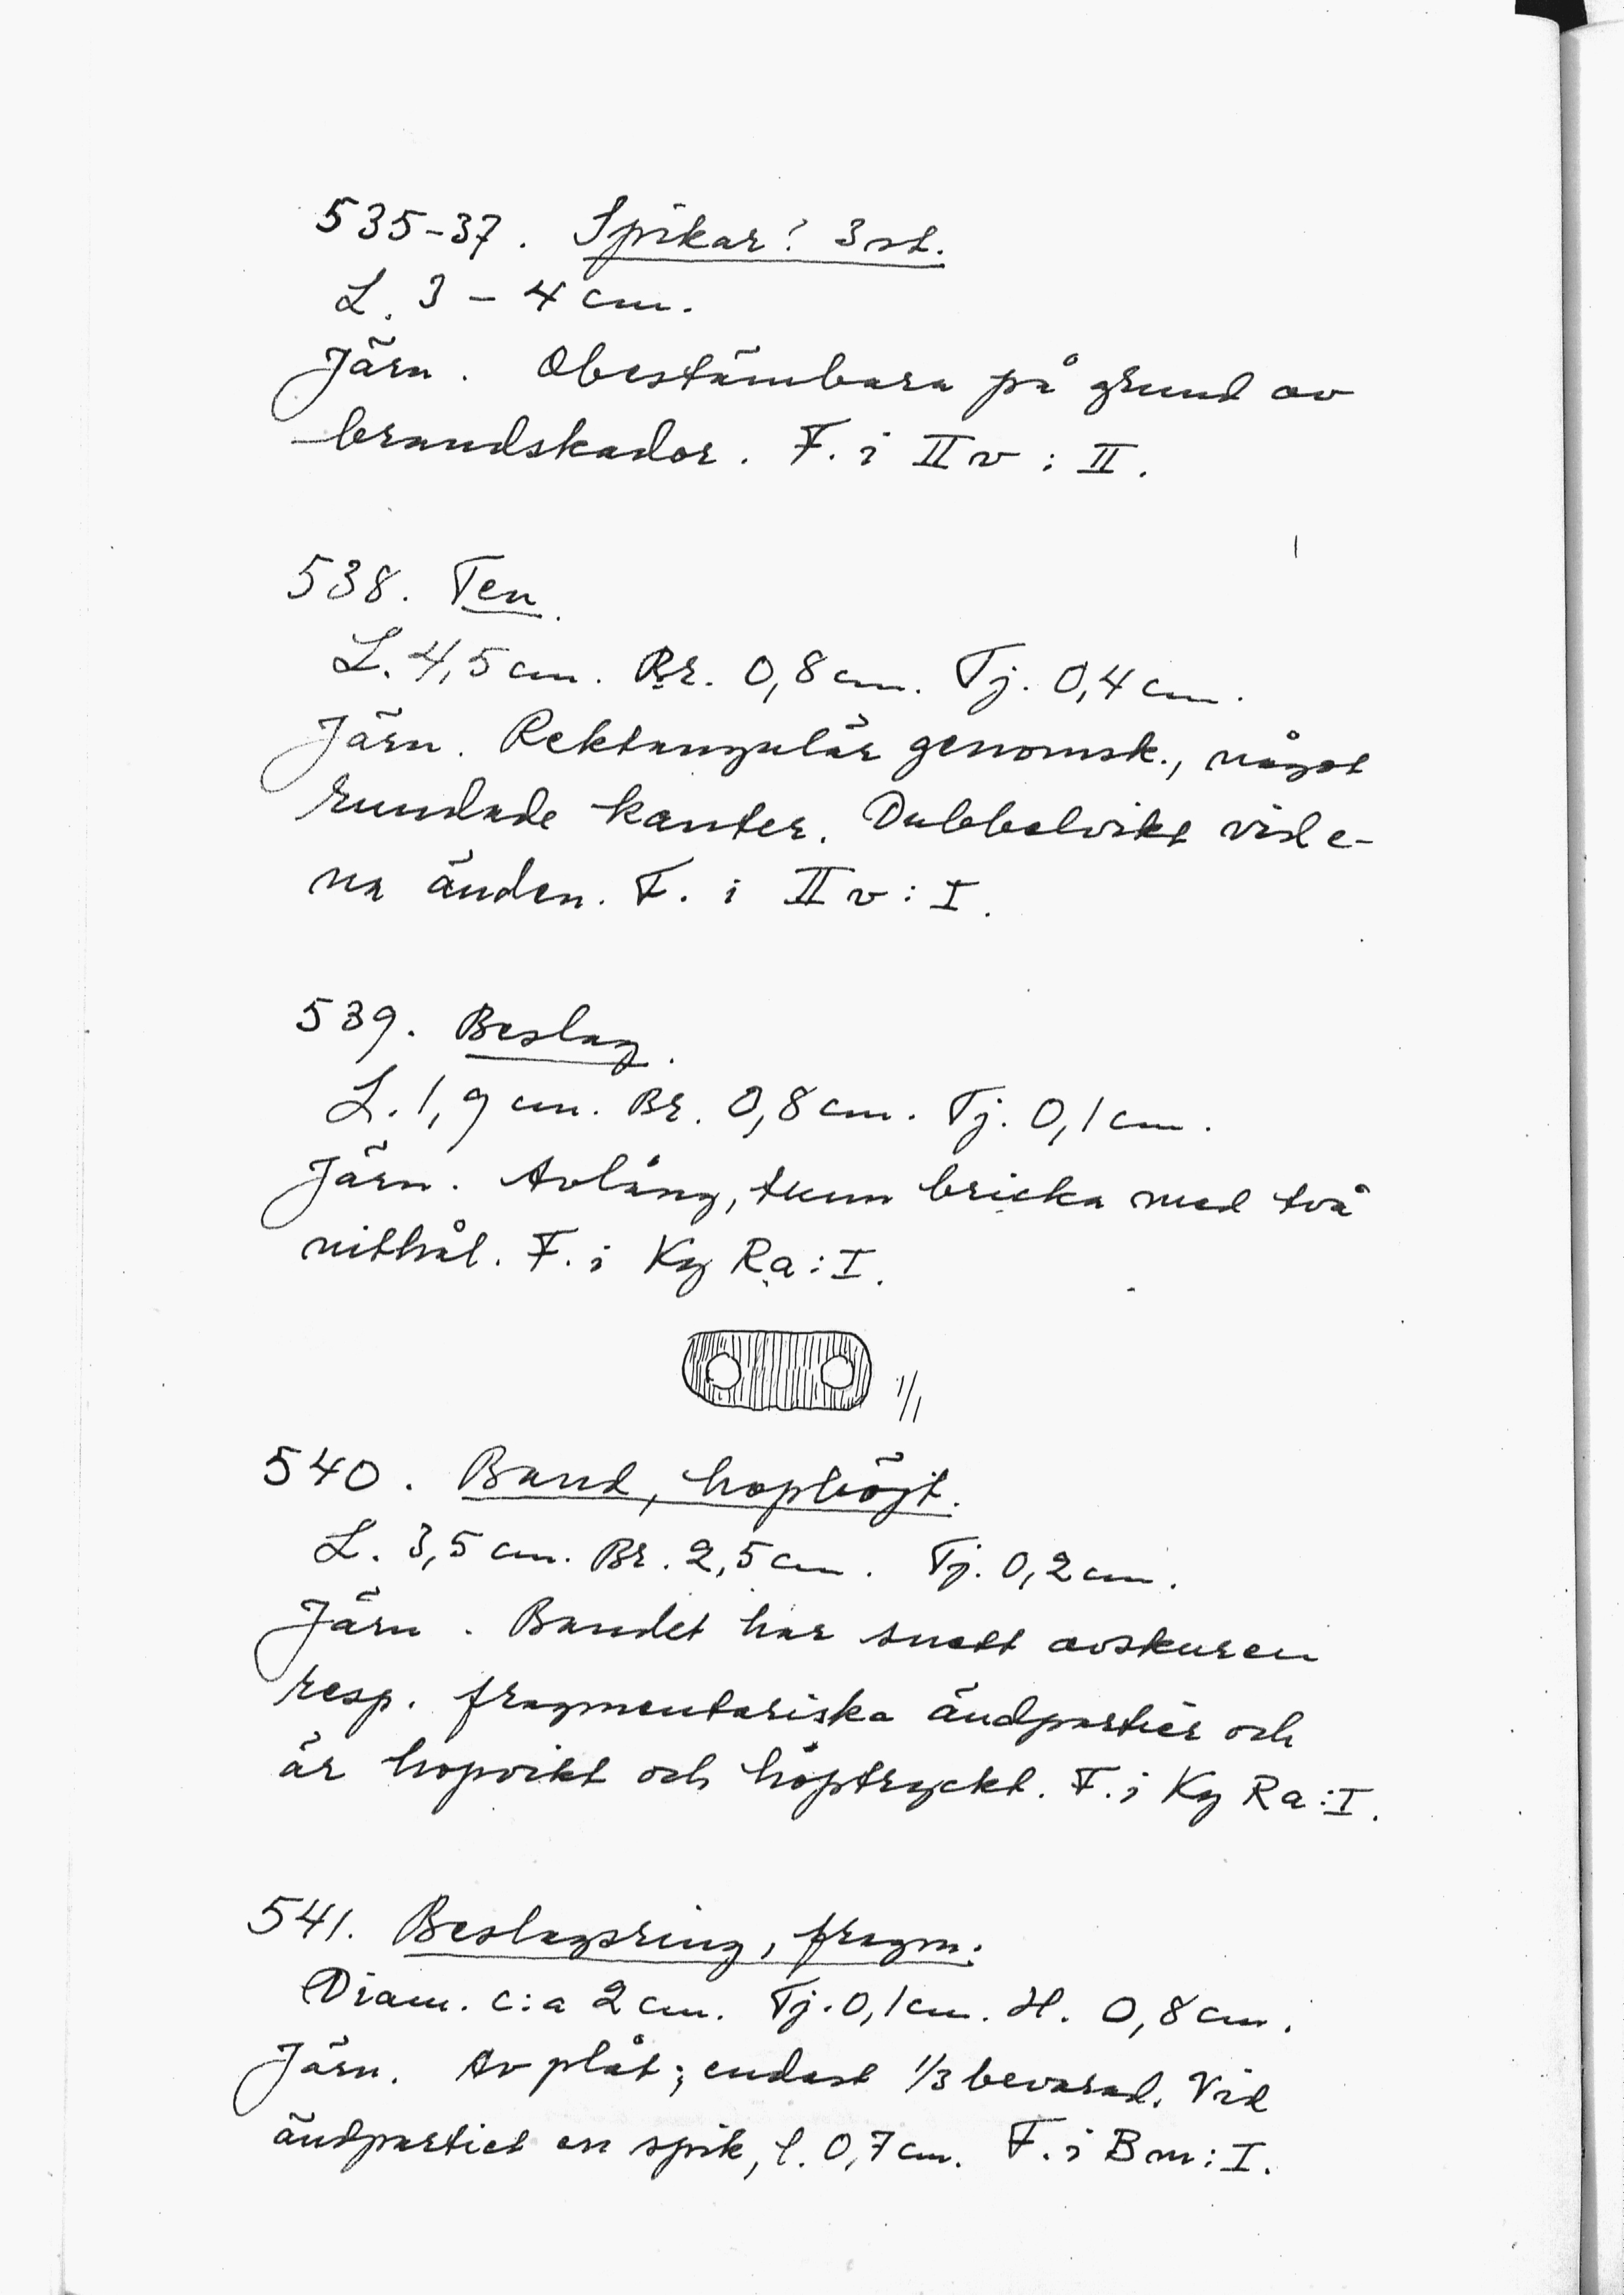 535-37. Spikar? 3 st.
L. 3 – 4 cm.
Järn. Obestämbara på grund av
brandskador. F. i II v : II.
538. Ten.
L. 4,5 cm. Br. 0,8 cm. Tj. 0,4 cm.
Järn. Rektangulär genomsk., något
rundade kanter. Dubbelvikt vid e-
na änden. F. i II v : I.
539. Beslag.
L. 1,9 cm. Br. 0,8 cm. Tj. 0,1 cm.
Järn. Avlång, tunn bricka med två
nithål. F. i Kg Ra : I.
1/1
540. Band, hopböjt.
L. 3,5 cm. Br. 2,5 cm. Tj. 0,2 cm.
Järn. Bandet har snett avskuren
resp. fragmentariska ändpartier och
är hopvikt och hoptryckt. F. i Kg Ra : I.
541. Beslagsring, fragm.
Diam. c:a 2 cm. Tj. 0,1 cm. H. 0,8 cm.
Järn. Av plåt; endast 1/3 bevarad. Vid
ändpartiet en spik, l. 0,7 cm. F. i B m : I.